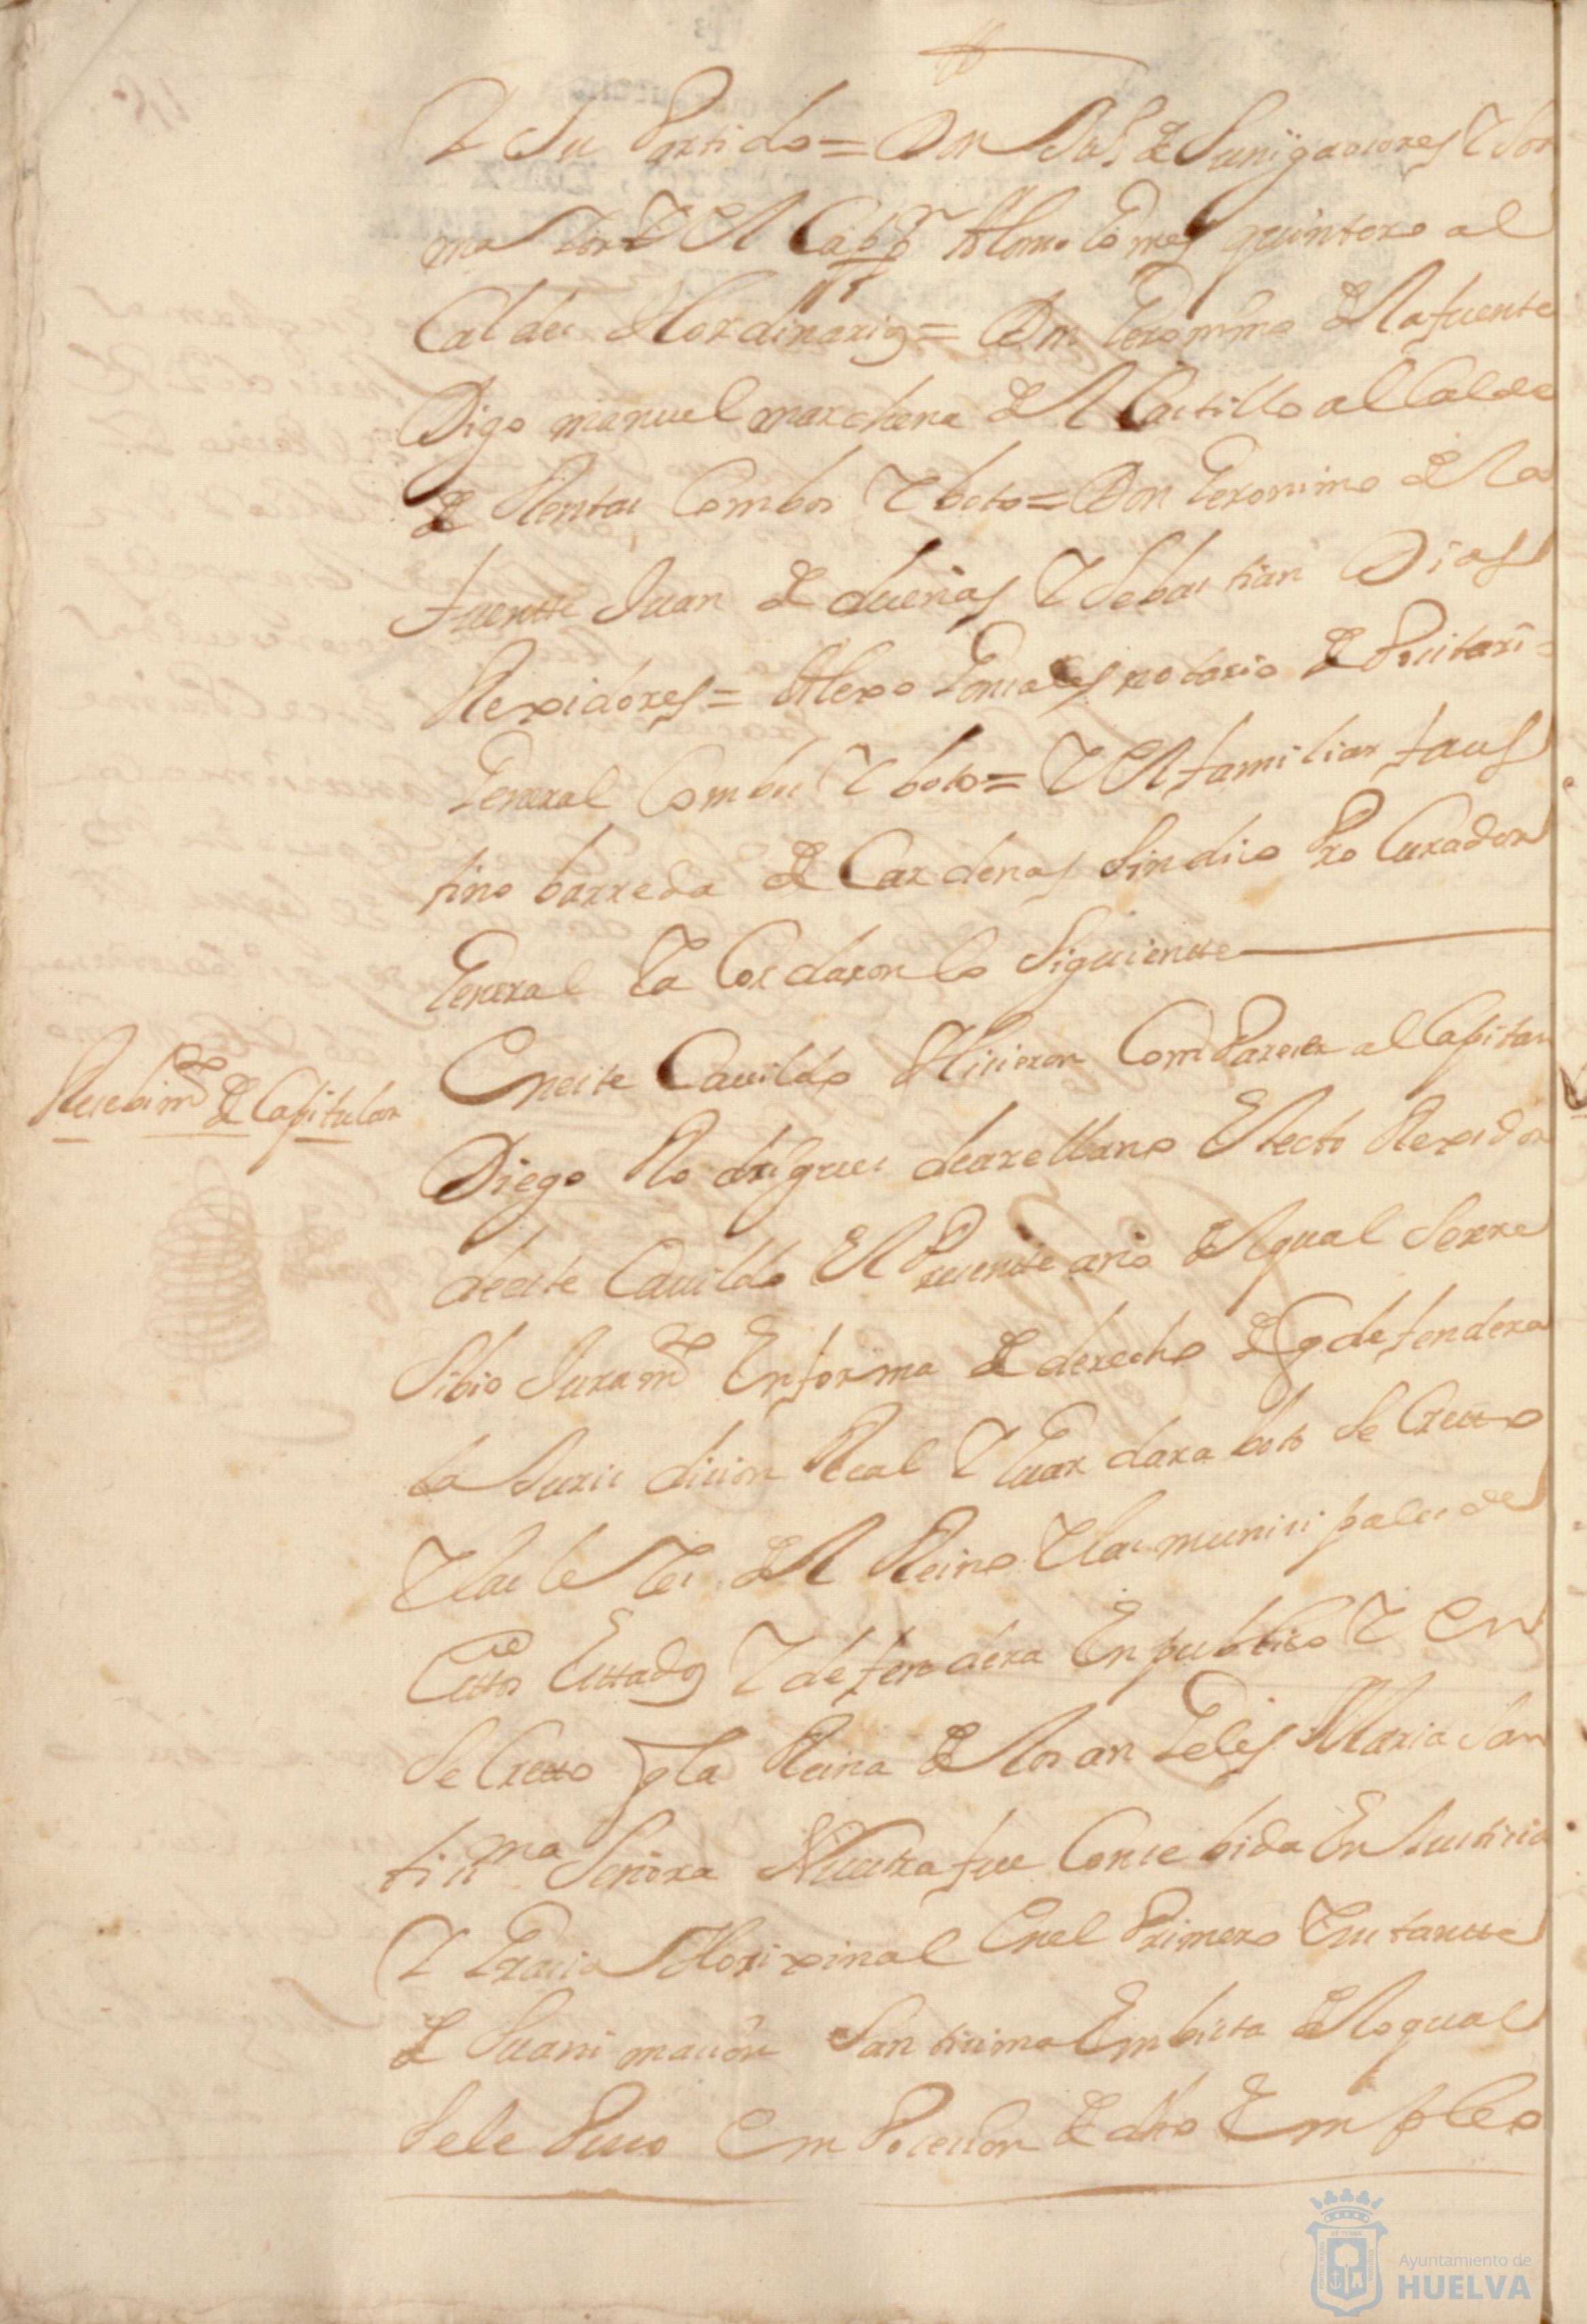 Y Su Partido = Don Balr. de Suniga osores Y Soto
ma Yor Y El Cappn. Alonso Gomes quintero al
Caldes Hordinarios = Don Geronimo de la fuente
Digo manuel marchena del Castillo al Calde
de Rentas Con vos Y boto = Don Geronimo de la
fuentte Juan de dueñas Y Sebastian Dias
Rexidores = Alexo Gonsales notario de
General Con bos Y boto = Y El familiar faus
tino barreda de Cardenas Sindico Pro Curador
General Ya Cordaron lo Siguientte
Reсebimto de Capitular
En este Cauildo Hicieron Comparecer al Capitan
Diego Rodrigues de arellano Electo Rexidor
de este Cauildo El Presentte año del qual Serre
Sibio Juramto En forma de derecho de q defendera
la Juris dicion Real Y Guar dara boto Se Cretto
Y las le Yes del Reino Y las municipales de
Esttos Esttados Y defen dera En publico Y En
Se Cretto q la Reina de los an Geles Maria San
tisima Señora Nuestra fue Conse bida En Justicia
Y Gracia Horixinal En el Primero Ynstantte
de Su animacion Santisima En bista de lo qual
Se le Puso En Posecion de dho Empleo
Ayuntamiento de
HUELVA